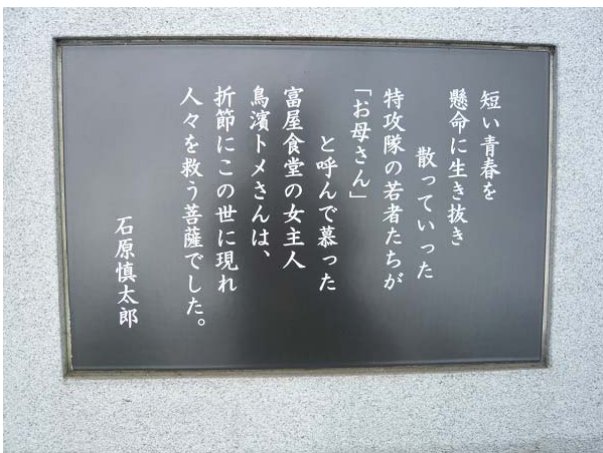 短い青春を
懸命に生き抜き
散っていった
特攻隊の若者たちが
「お母さん」
と呼んで慕った
富屋食堂の女主人
鳥濱トメさんは、
折節にこの世に現れ
人々を救う菩薩でした。
石原慎太郎